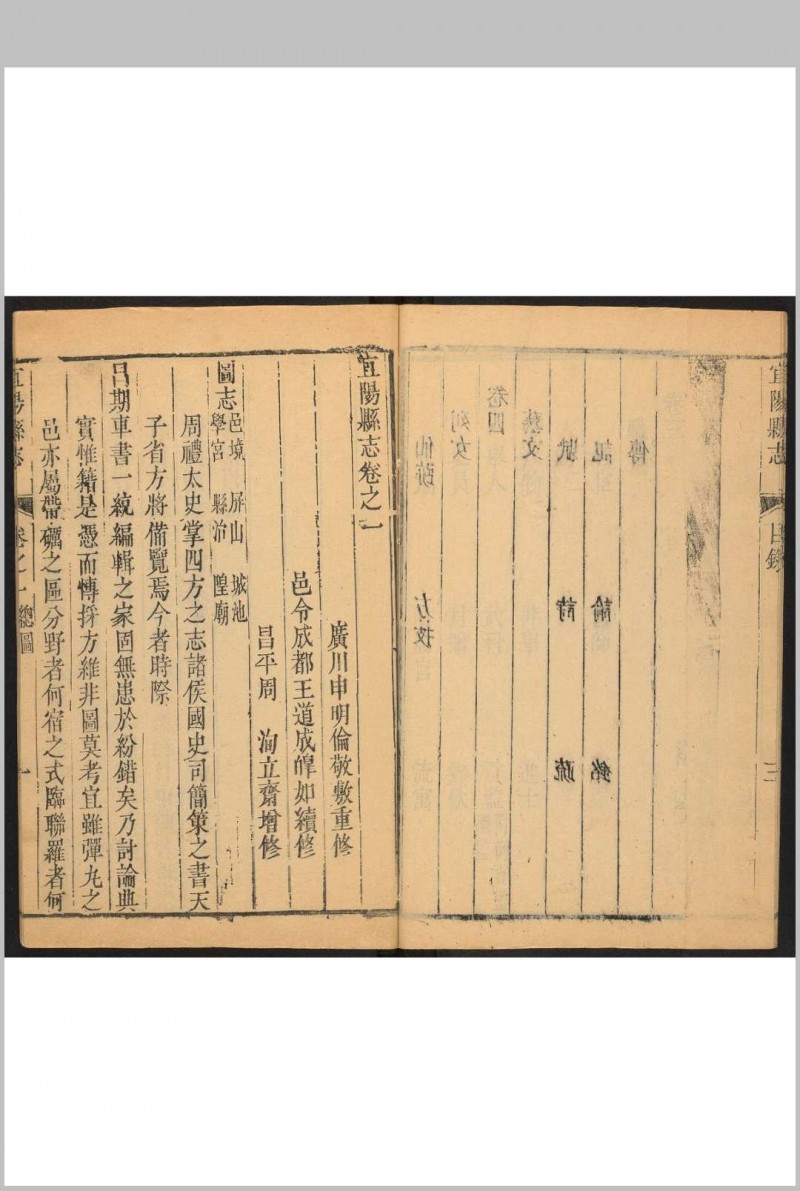 宜陽縣志 目錄 三
仙跡 方技
列女
卷四
藝文
賦 詩 疏
記 論 銘
傳
宜陽縣志卷之一
廣川申明倫敬敷重修
邑令成都王道成皡如續修
昌平周 洵立齋增修
圖志 邑境 屏山 城池
學宮 縣治 隍廟
周禮太史掌四方之志諸侯國史司簡策之書天
子省方將備覽焉今者時際
昌期車書一統編輯之家固無患於紛錯矣乃討論典
實惟籍是憑而慱採方維非圖莫考宜雖彈丸之
邑亦屬帶礪之區分野者何宿之式臨聯羅者何
宜陽縣志 卷之一 總圖 一